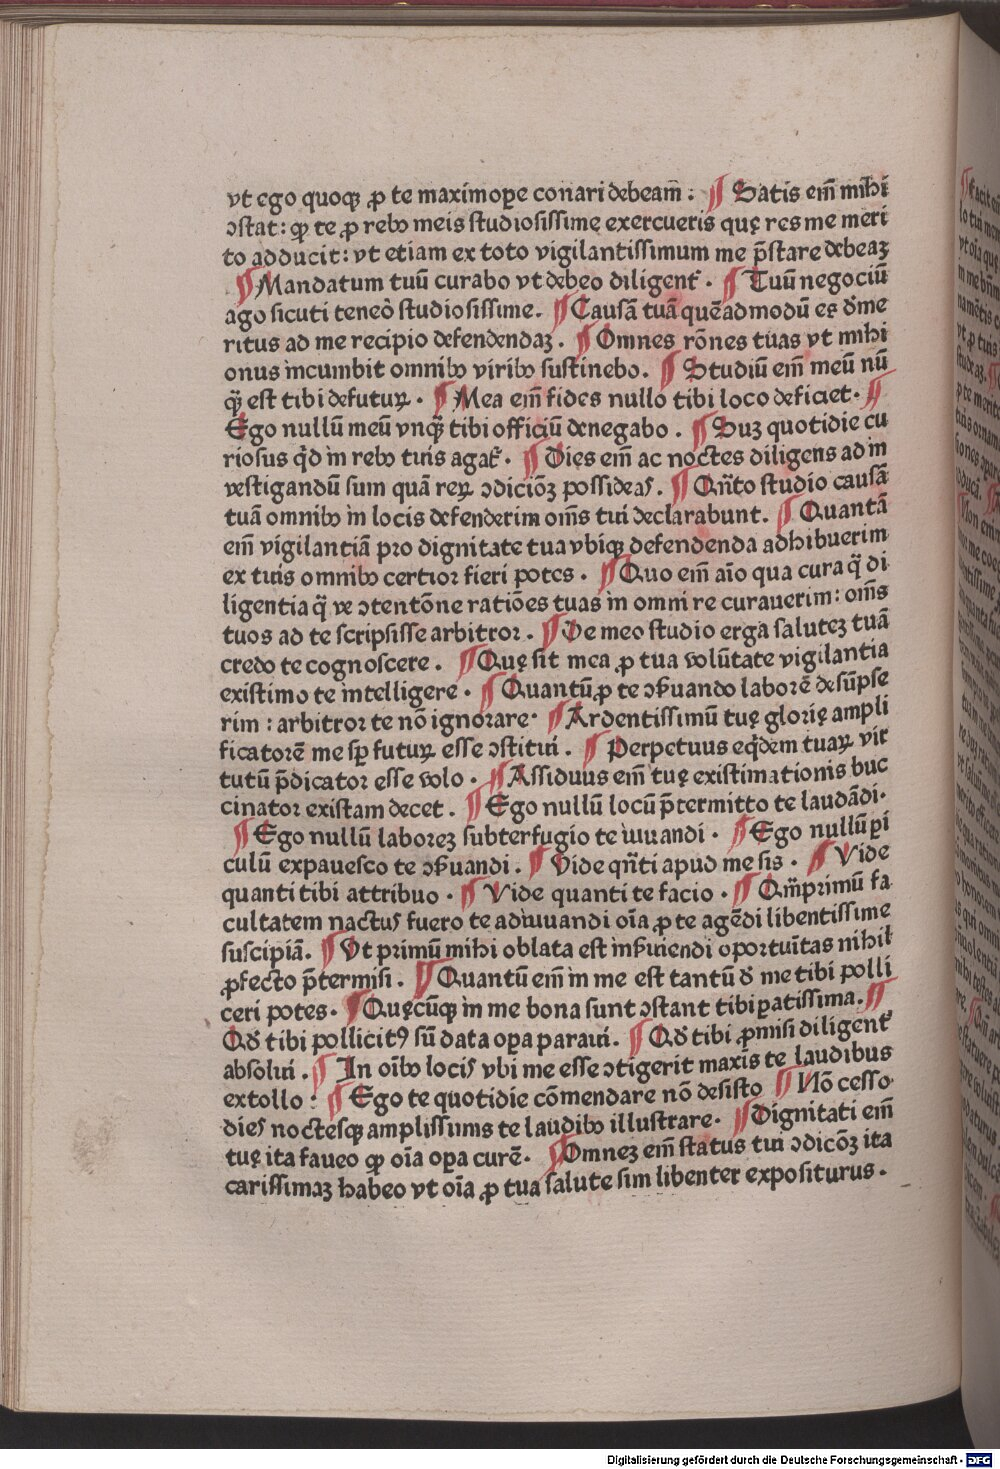 vt ego quoqꝫ ꝓ te maximoꝑe conari debeam̄ : ¶ Satis em̄ mihi
ↄstat : qꝫ te ꝓ rebꝰ meis studiosissime exercueris quę res me meri
to adducit : vt etiam ex toto vigilantissimum me p̄stare debeaꝫ
¶ Mandatum tuū curabo vt debeo diligent᷑ . ¶ Tuū negociū
ago sicuti teneoꝛ studiosissime . ¶ Causā tuā quēadmodū es de me
ritus ad me recipio defendendaꝫ . ¶ Omnes rōnes tuas vt mihi
onus incumbit omnibꝰ viribꝰ sustinebo . ¶ Studiū em̄ meū nū
q̄ȝ est tibi defuturꝝ . ¶ Mea em̄ fides nullo tibi loco deficiet . ¶
Ego nullū meū vnq̄ȝ tibi officiū denegabo . ¶ Suꝫ quotidie cu
riosus qd̓ in rebꝰ tuis agat᷑ . ¶ Dies em̄ ac noctes diligens ad in
vestigandū sum quā reꝝ ↄdicioēꝫ possideas . ¶ Qn̄to studio causā
tuā omnibꝰ in locis defenderim om̄s tui declarabunt . ¶ Quantā
em̄ vigilantiā pro dignitate tua vbiqꝫ defendenda adhibuerim
ex tuis omnibꝰ certioꝛ fieri potes . ¶ Quo em̄ aīo qua cura q̄ȝ di
ligentia q̄ȝ ve ↄtentōne ratiōes tuas in omni re curauerim : om̄s
tuos ad te scripsisse arbitroꝛ . ¶ De meo studio erga saluteꝫ tuā
credo te cognoscere . ¶ Quę sit mea ꝓ tua volūtate vigilantia
existimo te intelligere . ¶ Quantū ꝓ te ↄẜuando laborē desūpse
rim : arbitror te nō ignorare . ¶ Ardentissimū tuę glorię ampli
ficatorē me sꝑ futurꝝ esse ↄstitui . ¶ Perpetuus eqd̓em tuaꝝ vir
tutū p̄dicator esse volo . ¶ Assiduus em̄ tuę existimationis buc
cinator existam decet . ¶ Ego nullū locū p̄termitto te laudādi .
¶ Ego nullū laboreꝫ subterfugio te iuuandi . ¶ Ego nullū ꝑi
culū expauesco te ↄẜuandi . ¶ Vide qn̄ti apud me sis . ¶ Vide
quanti tibi attribuo . ¶ Vide quanti te facio . ¶ Qm̄primū fa
cultatem nactus fuero te adiuuandi oīa ꝓ te agēdi libentissime
suscipiā . ¶ Vt primū mihi oblata est inẜuiendi oportuītas nihil
ꝓfecto p̄termisi . ¶ Quantū em̄ in me est tantū de me tibi polli
ceri potes . ¶ Quęcūqꝫ in me bona sunt ↄstant tibi ꝑatissima . ¶
Qd̓ tibi pollicitꝰ sū data oꝑa paraui . ¶ Qd̓ tibi ꝓmisi diligent᷑
absolui . ¶ In oībꝰ locis vbi me esse ↄtigerit maxīs te laudibus
extollo : ¶ Ego te quotidie cōmendare nō desisto ¶ Nō cesso
dies noctesqꝫ amplissimis te laudibꝰ illustrare . ¶ Dignitati em̄
tuę ita faueo qꝫ oīa oꝑa curē . ¶ Omneꝫ em̄ status tui ↄdicōꝫ ita
carissimaꝫ habeo vt oīa ꝓ tua salute sim libenter expositurus .
Digitalisierung gefördert durch die Deutsche Forschungsgemeinschaft - DFG